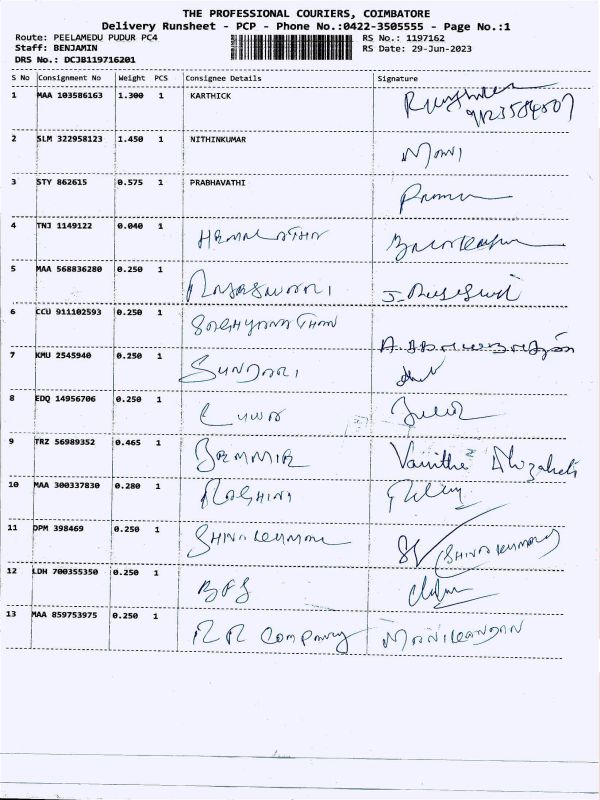 THE PROFESSIONAL COURIERS, COIMBATORE
Delivery Runsheet - PCP - Phone No.:0422-3505555 - Page No.:1
Route: PEELAMEDU PUDUR PC4 RS No.: 1197162
Staff: BENJAMIN RS Date: 29-Jun-2023
DRS No.: DCJB119716201
S No Consignment No Weight PCS Consignee Details Signature
1 MAA 103586163 1.300 1 KARTHICK
2 SLM 322958123 1.450 1 NITHINKUMAR Mani
3 STY 862615 0.575 1 PRABHAVATHI
4 TNJ 1149122 0.040 1 HEMALATHA
5 MAA 568836280 0.250 1 RAJESWARI
6 CCU 911102593 0.250 1
7 KMU 2545940 0.250 1 SUNDARI
8 EDQ 14956706 0.250 1
9 TRZ 56989352 0.465 1 Vanitha
10 MAA 300337830 0.280 1 ROSHINI
11 DPM 398469 0.250 1 SHIVAKUMAR (SHIVAKUMAR)
12 LDH 700355350 0.250 1
13 MAA 859753975 0.250 1 RR Company MANIKANDAN